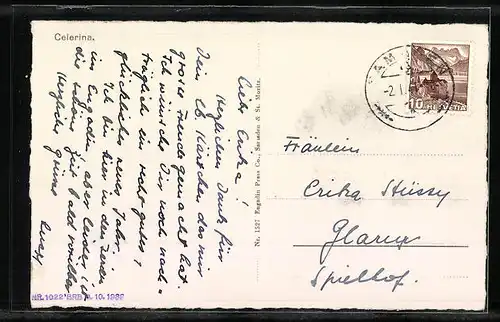 Celerina.
Liebe Erika!
Herzlichen Dank für
Dein lb Kärtchen das mir
grosse Freude gemacht hat.
Ich wünsche Dir noch nach-
träglich ein recht gutes,
glückliches neues Jahr.
Ich bin hier in den Ferien
im Engadin, aber leider ist
die schöne Zeit bald vorüber
Herzliche Grüsse
Nr. 1527 Engadin Press Co., Samaden & St. Moritz.
NR. 1022 BRB 3. 10. 1939
-2.I.
10 HELVETIA
Fräulein
Erika Stüssy
Glarus
Spielhof.